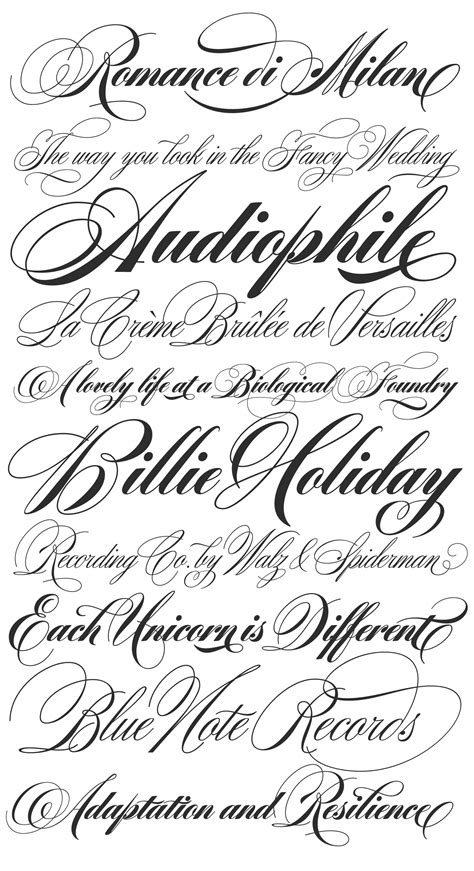 Romance di Milan
The way you look in the Fancy Wedding
Audiophile
La Crème Brûlée de Versailles
A lovely life at a Biological Foundry
Billie Holiday
Recording Co. by Walz & Spiderman
Each Unicorn is Different
Blue Note Records
Adaptation and Resilience